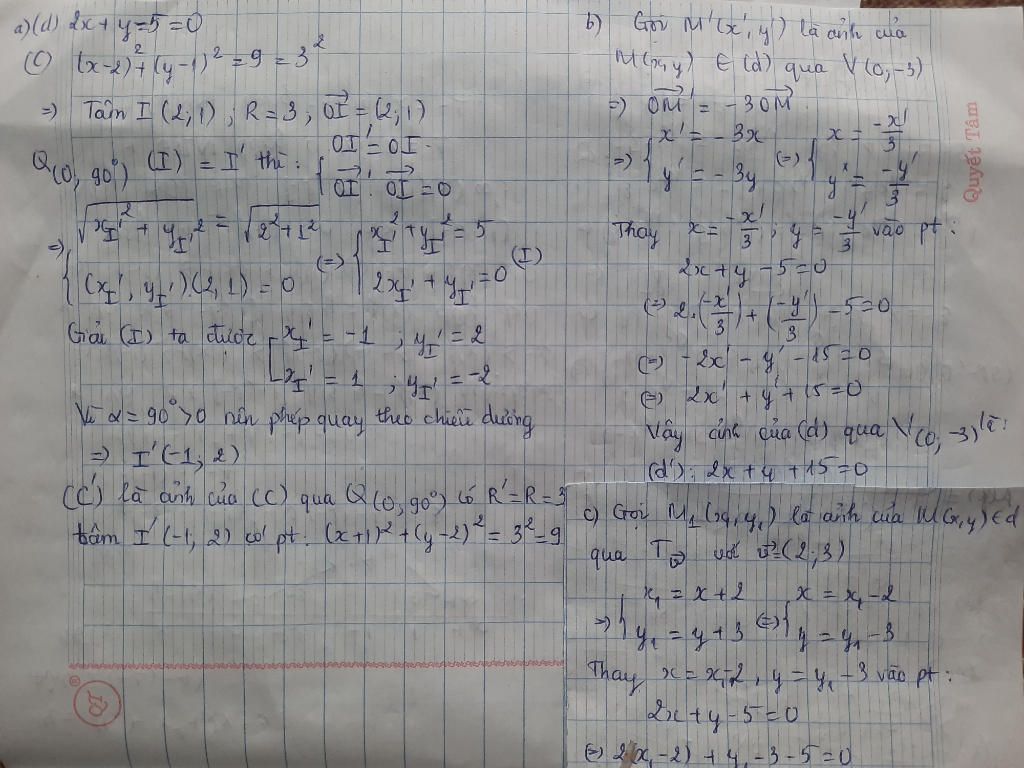 a) (d) 2x + y - 5 = 0
(C) (x-2)² + (y-1)² = 9 = 3²
=> Tâm I (2;1) ; R = 3 ; \vec{OI} = (2;1)
Q(0, 90°) (I) = I' thì : { OI' = OI
\vec{OI'} . \vec{OI} = 0
=> { √(x_I'² + y_I'²) = √(2²+1²)
(x_I', y_I').(2,1) = 0
(=) { x_I'² + y_I'² = 5
2x_I' + y_I' = 0 (I)
Giải (I) ta được [ x_I' = -1 ; y_I' = 2
x_I' = 1 ; y_I' = -2
Vì α = 90° > 0 nên phép quay theo chiều dương
=> I' (-1; 2)
(C') là ảnh của (C) qua Q(0, 90°) có R' = R = 3
tâm I' (-1; 2) có pt: (x+1)² + (y-2)² = 3² = 9
b) Gọi M'(x', y') là ảnh của
M(x,y) ∈ (d) qua V(0, -3)
=> \vec{OM'} = -3\vec{OM}
=> { x' = -3x
y' = -3y
(=) { x = -x'/3
y = -y'/3
Thay x = -x'/3 ; y = -y'/3 vào pt :
2x + y - 5 = 0
(=) 2.(-x'/3) + (-y'/3) - 5 = 0
(=) -2x' - y' - 15 = 0
(=) 2x' + y' + 15 = 0
Vậy ảnh của (d) qua V(0, -3) là :
(d') : 2x + y + 15 = 0
c) Gọi M₁(x₁, y₁) là ảnh của M(x,y) ∈ d
qua T_\vec{v} với \vec{v} = (2; 3)
=> { x₁ = x + 2
y₁ = y + 3
(=) { x = x₁ - 2
y = y₁ - 3
Thay x = x₁-2, y = y₁ - 3 vào pt :
2x + y - 5 = 0
(=) 2(x₁-2) + y₁ - 3 - 5 = 0
Quyết Tâm